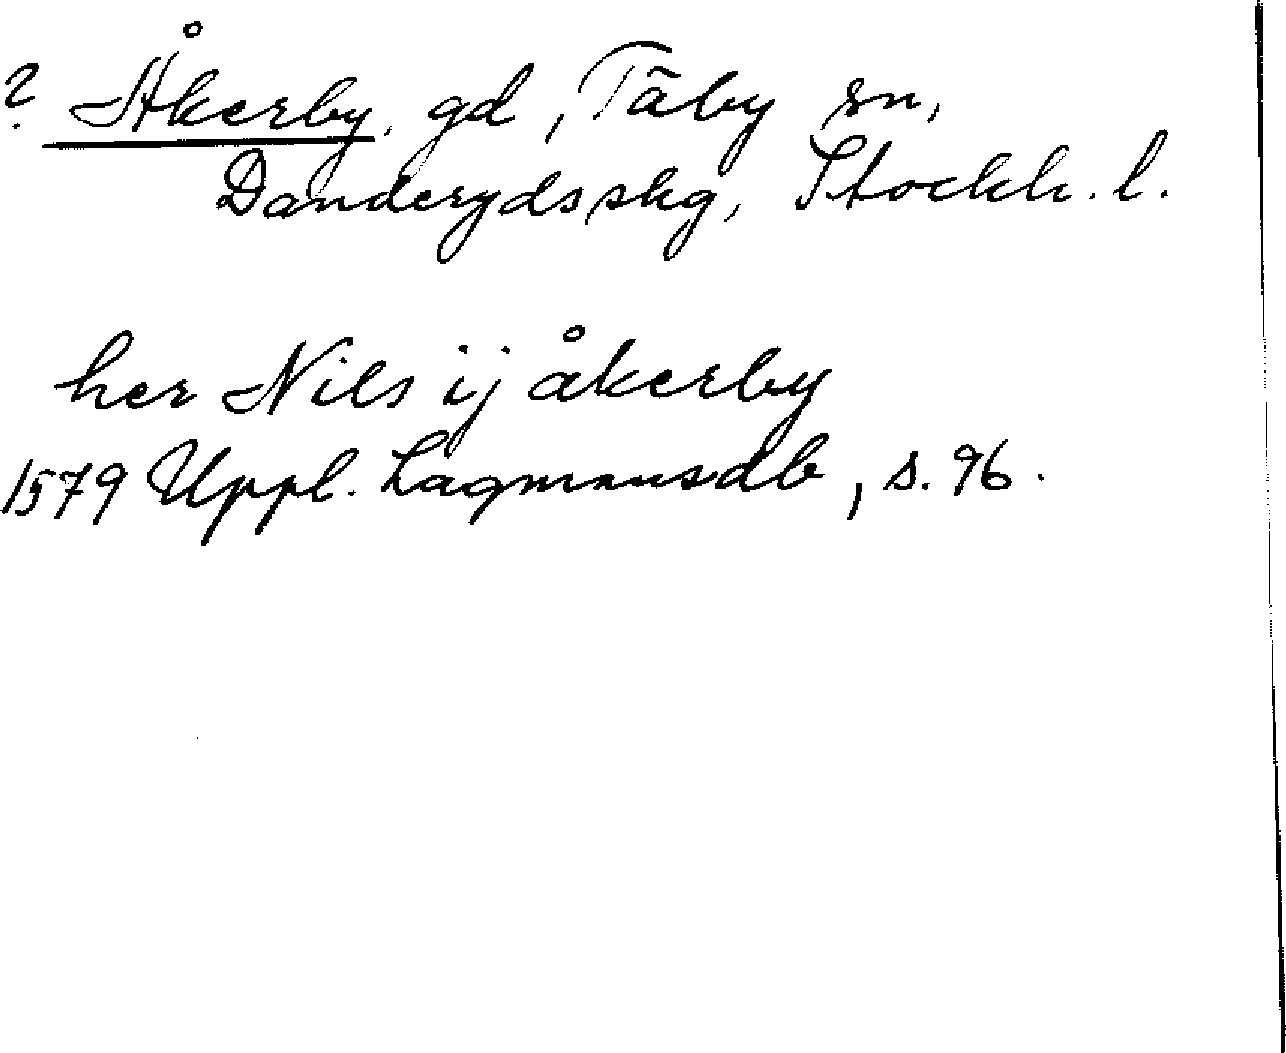 ? Åkerby, gd, Täby sn,
Danderydsskg, Stockh. l.
her Nils ij åkerby
1579 Uppl. Lagmansdb, s. 96.